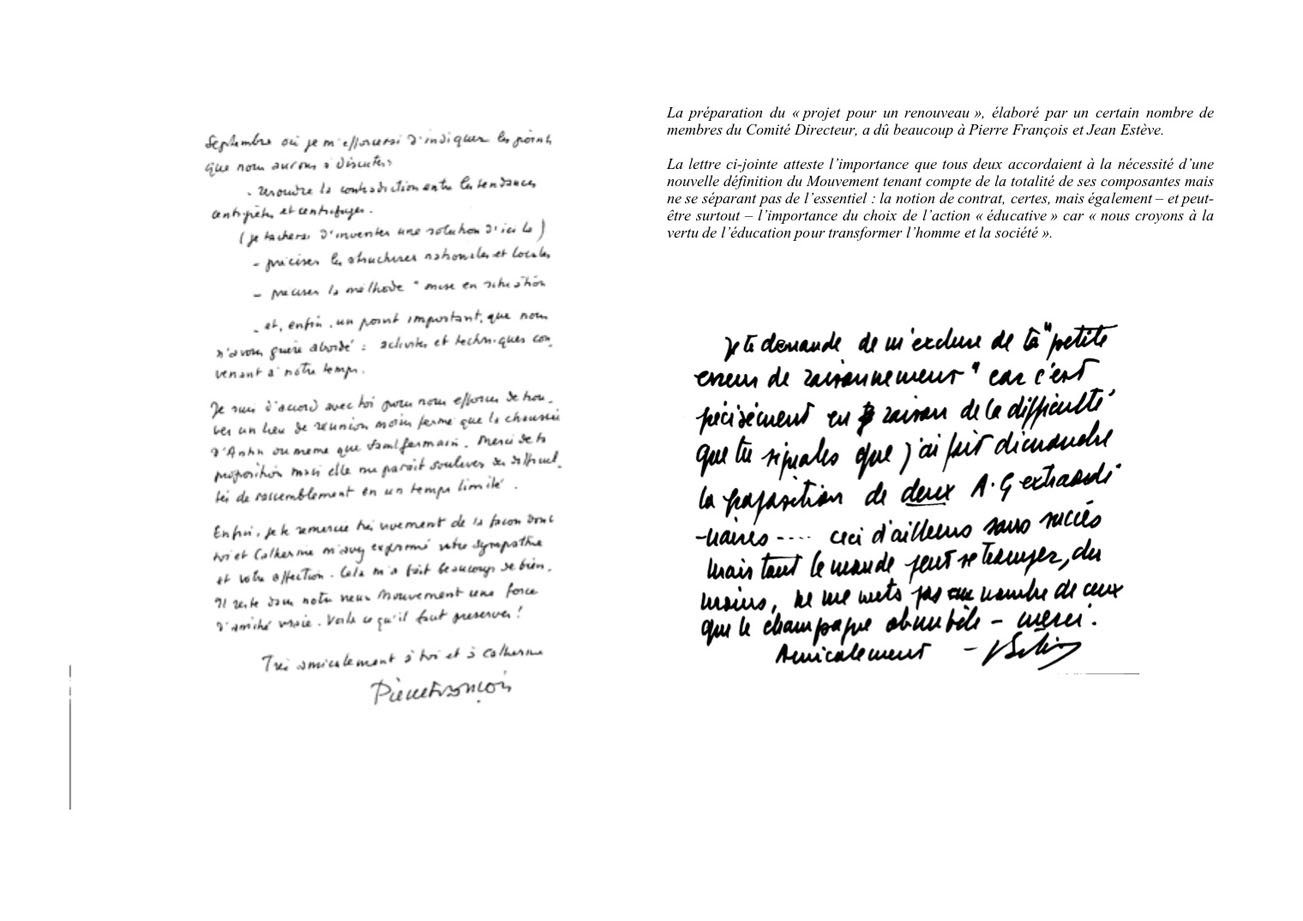 Septembre où je m'efforcerai d'indiquer les points
que nous aurons à discuter :
- résoudre la contradiction entre les tendances
centripètes et centrifuges.
(je tacherai d'inventer une solution d'ici là)
- préciser les structures nationales et locales
- préciser la méthode " mise en situation
- et, enfin, un point important, que nous
n'avons guère abordé : activités et techniques con
venant à notre temps.
Je suis d'accord avec toi pour nous efforcer de trou-
ver un lieu de réunion moins fermé que la chaussée
d'Antin ou même que Saint Germain. Merci de ta
proposition mais elle me paraît soulever des difficul-
tés de rassemblement en un temps limité.
Enfin, je te remercie très vivement de la façon dont
toi et Catherine m'avez exprimé votre sympathie
et votre affection. Cela m'a fait beaucoup de bien.
Il reste dans notre vieux Mouvement une force
d'amitié vraie. Voilà ce qu'il faut préserver !
Très amicalement à toi et à Catherine
Pierre François
La préparation du « projet pour un renouveau », élaboré par un certain nombre de
membres du Comité Directeur, a dû beaucoup à Pierre François et Jean Estève.
La lettre ci-jointe atteste l'importance que tous deux accordaient à la nécessité d'une
nouvelle définition du Mouvement tenant compte de la totalité de ses composantes mais
ne se séparant pas de l'essentiel : la notion de contrat, certes, mais également – et peut-
être surtout – l'importance du choix de l'action « éducative » car « nous croyons à la
vertu de l'éducation pour transformer l'homme et la société ».
Je te demande de m'exclure de ta "petite
erreur de raisonnement" car c'est
précisément en raison de la difficulté
que tu signales que j'ai fait
la proposition de deux A.G extraordi
-naires ---- ceci d'ailleurs sans succès
Mais tout le monde peut se tromper, du
moins, ne me mets pas au nombre de ceux
que le champagne obnubile - merci.
Amicalement -